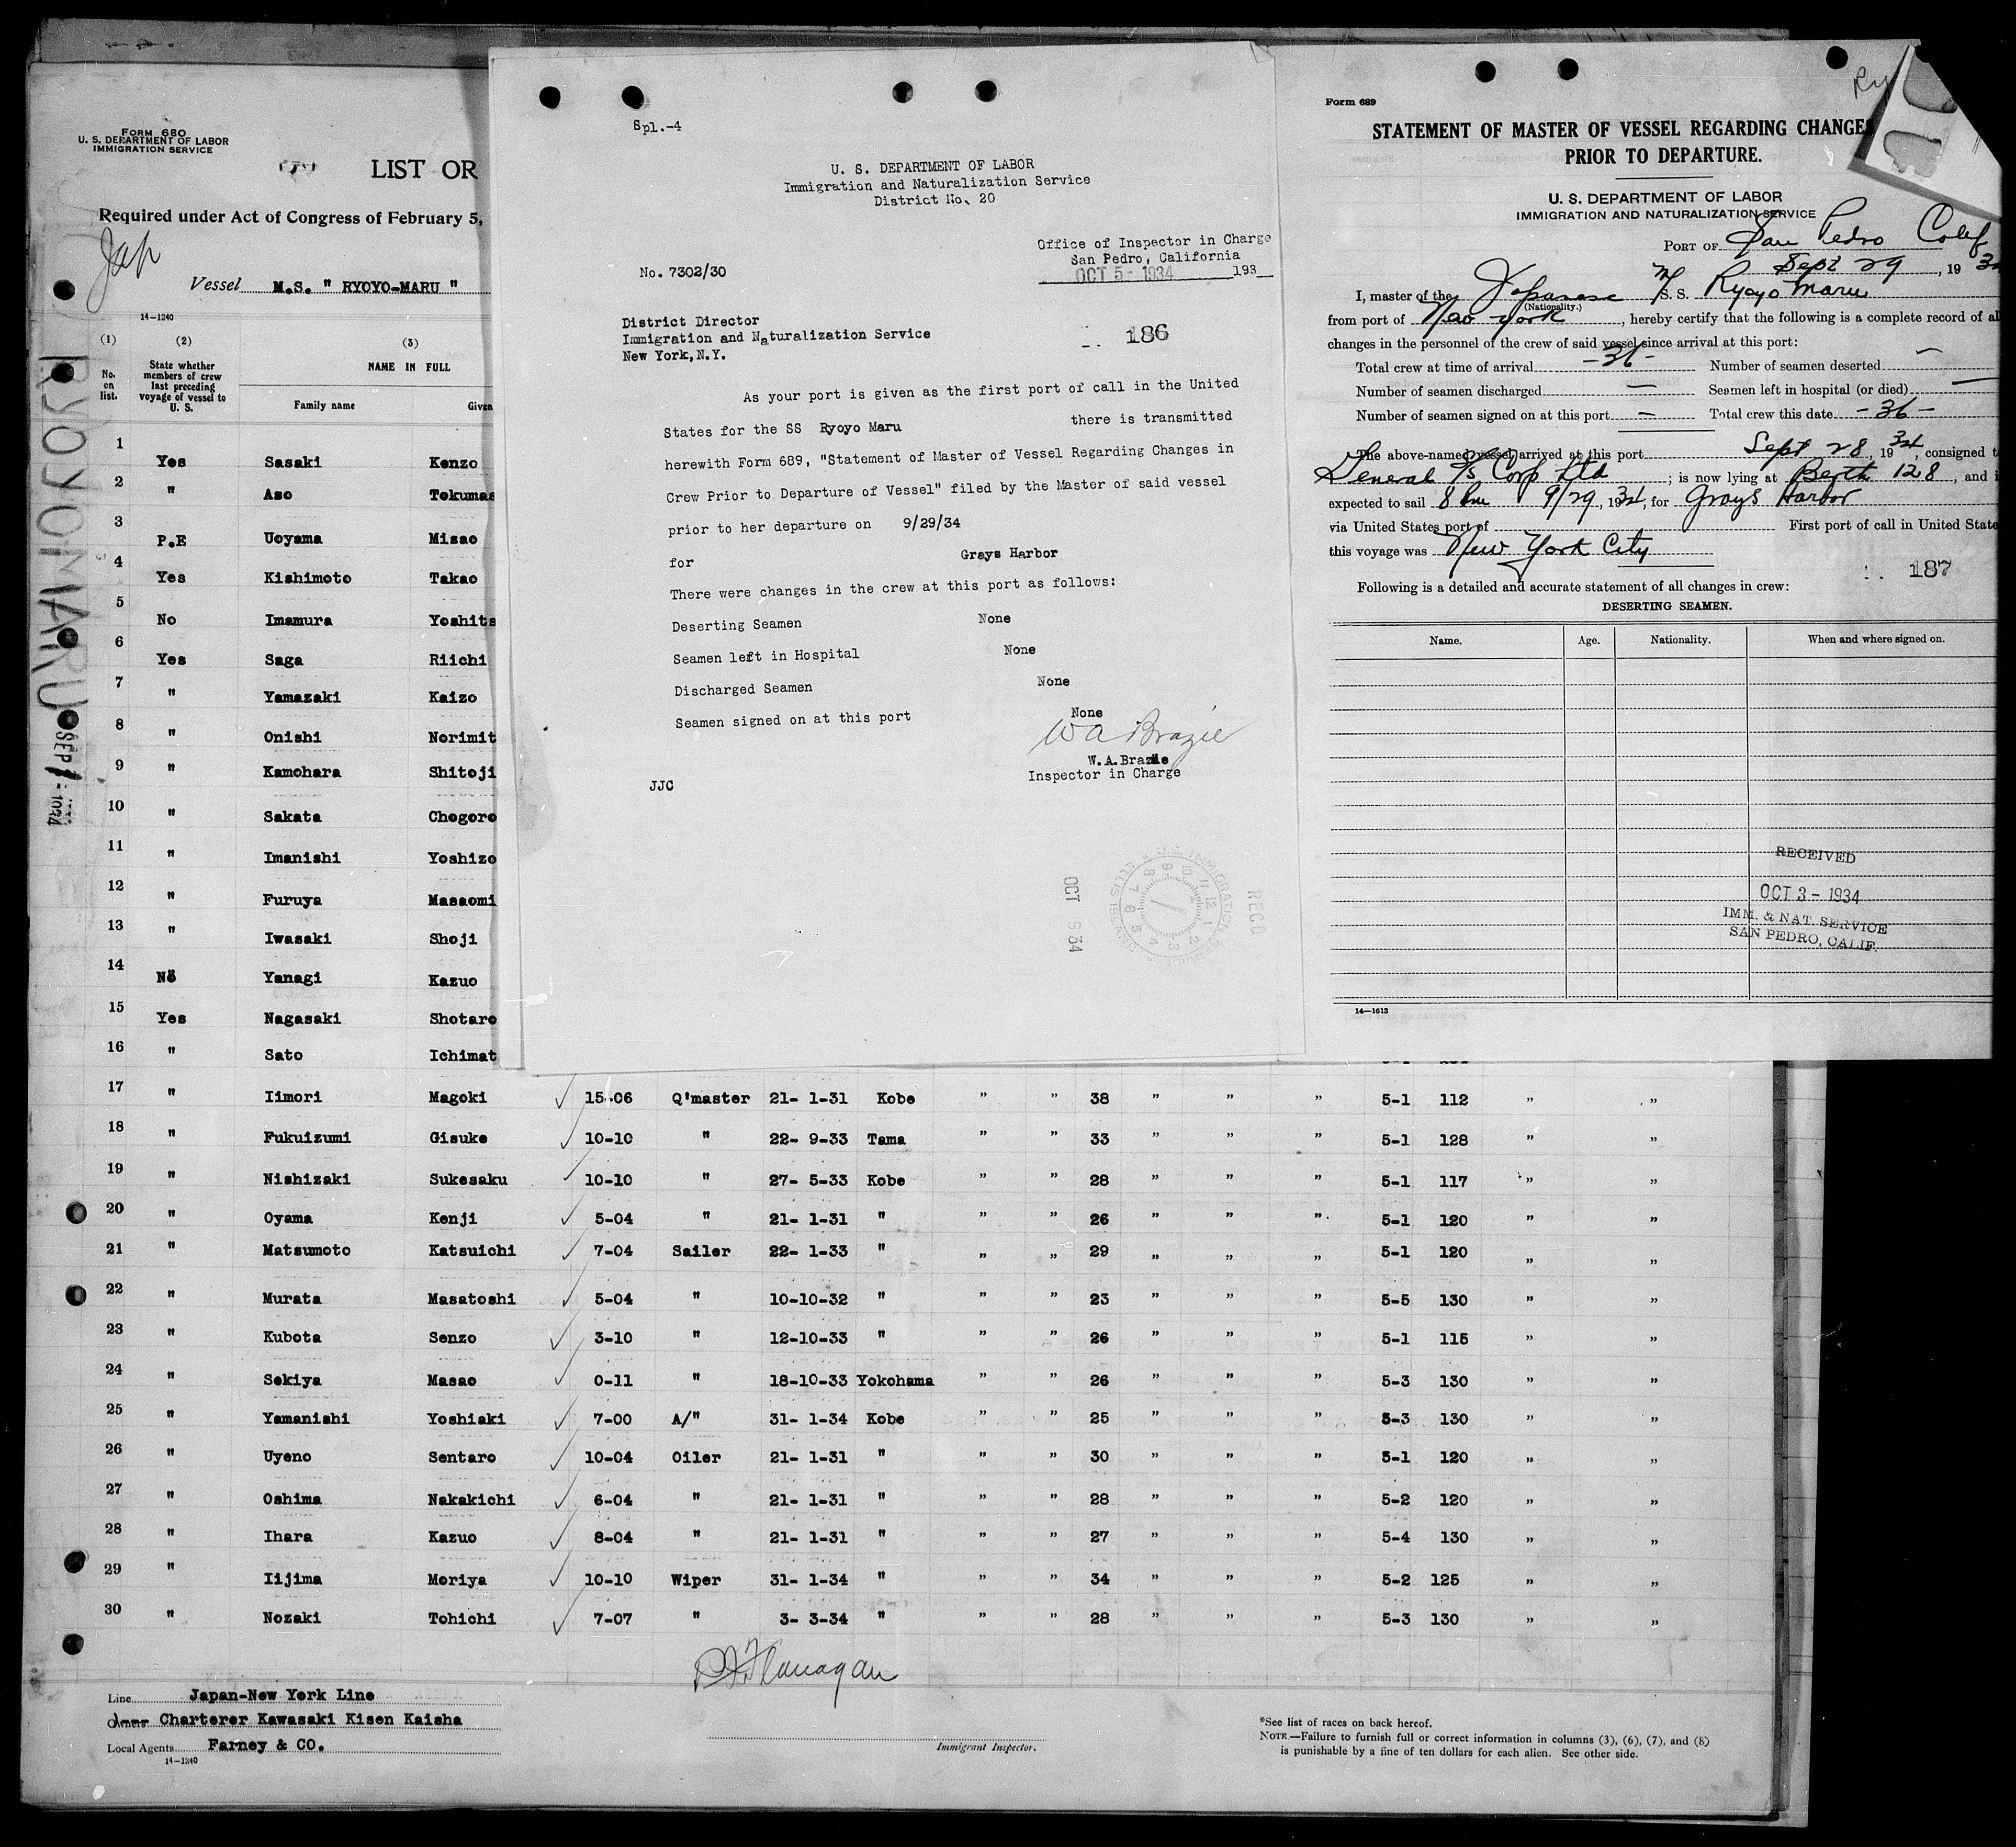 FORM 680
U. S. DEPARTMENT OF LABOR
IMMIGRATION SERVICE
LIST OR
Required under Act of Congress of February 5,
Jap
Vessel M.S. " RYOYO-MARU "
14-1240
(1) (2) (3)
No. on list. State whether members of crew last preceding voyage of vessel to U. S. NAME IN FULL
Family name Given
1 Yes Sasaki Kenzo
2 " Aso Tokumas
3 P.E Uoyama Misao
4 Yes Kishimoto Takao
5 No Imamura Yoshits
6 Yes Saga Riichi
7 " Yamazaki Kaizo
8 " Onishi Norimit
9 " Kamohara Shitoji
10 " Sakata Chogoro
11 " Imanishi Yoshizo
12 " Furuya Masaomi
13 " Iwasaki Shoji
14 No Yanagi Kazuo
15 Yes Nagasaki Shotaro
16 " Sato Ichimat
17 " Iimori Magoki 15-06 Q'master 21- 1-31 Kobe " " 38 " " " 5-1 112 " "
18 " Fukuizumi Gisuke 10-10 " 22- 9-33 Tama " " 33 " " " 5-1 128 " "
19 " Nishizaki Sukesaku 10-10 " 27- 5-33 Kobe " " 28 " " " 5-1 117 " "
20 " Oyama Kenji 5-04 " 21- 1-31 " " " 26 " " " 5-1 120 " "
21 " Matsumoto Katsuichi 7-04 Sailer 22- 1-33 " " " 29 " " " 5-1 120 " "
22 " Murata Masatoshi 5-04 " 10-10-32 " " " 23 " " " 5-5 130 " "
23 " Kubota Senzo 3-10 " 12-10-33 " " " 26 " " " 5-1 115 " "
24 " Sekiya Masao 0-11 " 18-10-33 Yokohama " " 26 " " " 5-3 130 " "
25 " Yamanishi Yoshiaki 7-00 A/" 31- 1-34 Kobe " " 25 " " " 5-3 130 " "
26 " Uyeno Sentaro 10-04 Oiler 21- 1-31 " " " 30 " " " 5-1 120 " "
27 " Oshima Nakakichi 6-04 " 21- 1-31 " " " 28 " " " 5-2 120 " "
28 " Ihara Kazuo 8-04 " 21- 1-31 " " " 27 " " " 5-4 130 " "
29 " Iijima Moriya 10-10 Wiper 31- 1-34 " " " 34 " " " 5-2 125 " "
30 " Nozaki Tohichi 7-07 " 3- 3-34 " " " 28 " " " 5-3 130 " "
Flanagan
Line Japan-New York Line
Owners Charterer Kawasaki Kisen Kaisha
Local Agents Farney & CO.
14-1240
Immigrant Inspector.
*See list of races on back hereof.
NOTE.—Failure to furnish full or correct information in columns (3), (6), (7), and (8)
is punishable by a fine of ten dollars for each alien. See other side.
RYOYO MARU
SEP
Spl.-4
U. S. DEPARTMENT OF LABOR
Immigration and Naturalization Service
District No. 20
Office of Inspector in Charge
San Pedro, California
No. 7302/30
OCT 5 - 1934 193
District Director
Immigration and Naturalization Service
New York, N.Y.
186
As your port is given as the first port of call in the United
States for the SS Ryoyo Maru there is transmitted
herewith Form 689, "Statement of Master of Vessel Regarding Changes in
Crew Prior to Departure of Vessel" filed by the Master of said vessel
prior to her departure on 9/29/34
for Grays Harbor
There were changes in the crew at this port as follows:
Deserting Seamen None
Seamen left in Hospital None
Discharged Seamen None
Seamen signed on at this port None
W A Brazie
W.A.Brazie
Inspector in Charge
JJC
OCT 9 34
REC'D
U.S. IMMIGRATION
ELLIS ISLAND
Form 689
Ry
STATEMENT OF MASTER OF VESSEL REGARDING CHANGES
PRIOR TO DEPARTURE.
U. S. DEPARTMENT OF LABOR
IMMIGRATION AND NATURALIZATION SERVICE
PORT OF San Pedro Calif
Sept 29, 1934
I, master of the Japanese M S. S. Ryoyo Maru
(Nationality.)
from port of New York, hereby certify that the following is a complete record of all
changes in the personnel of the crew of said vessel since arrival at this port:
Total crew at time of arrival -36- Number of seamen deserted —
Number of seamen discharged — Seamen left in hospital (or died) —
Number of seamen signed on at this port — Total crew this date -36-
The above-named vessel arrived at this port Sept 28, 1934, consigned to
General S/S Corp Ltd; is now lying at Berth 128, and i
expected to sail 8 pm 9/29, 1934, for Grays Harbor
via United States port of First port of call in United State
this voyage was New York City
187
Following is a detailed and accurate statement of all changes in crew:
DESERTING SEAMEN.
Name. Age. Nationality. When and where signed on.
RECEIVED
OCT 3 - 1934
IMM. & NAT. SERVICE
SAN PEDRO, CALIF.
14—1613